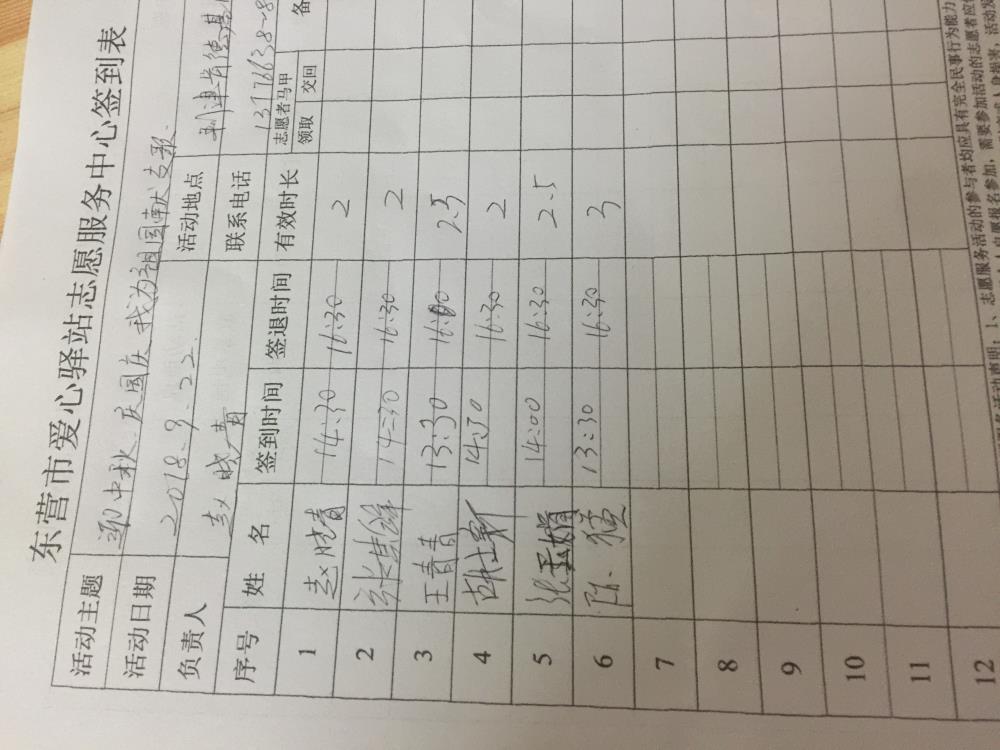 东营市爱心驿站志愿服务中心签到表
活动主题 迎中秋 庆国庆 我为祖国献支歌
活动日期 2018.9.22. 活动地点
负责人 赵晓青 联系电话
序号 姓名 签到时间 签退时间 有效时长 志愿者马甲 领取 交回
1 赵晓青 14:30 16:30 2
2 14:30 16:30 2
3 王青青 13:30 16:00 2.5
4 14:30 16:30 2
5 14:00 16:30 2.5
6 13:30 16:30 3
7
8
9
10
11
12
志愿服务活动的参与者均应具有完全民事行为能力